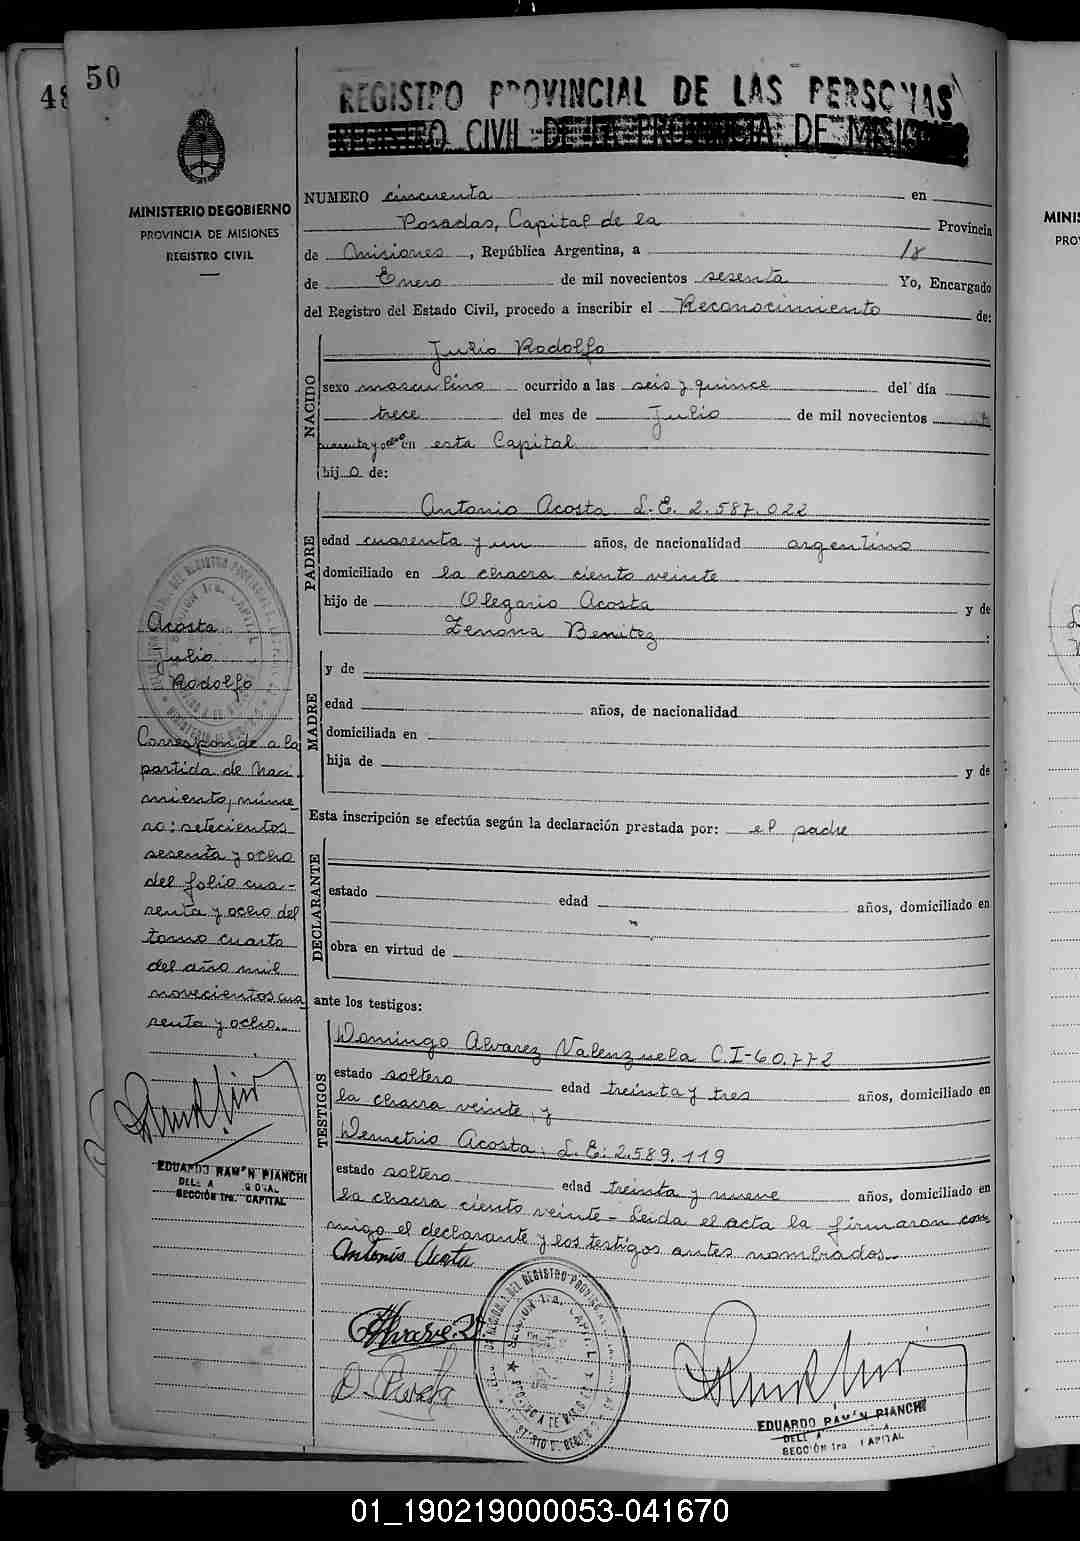 50
48
REGISTRO PROVINCIAL DE LAS PERSONAS
REGISTRO CIVIL DE LA PROVINCIA DE MISIONES
MINISTERIO DE GOBIERNO
PROVINCIA DE MISIONES
REGISTRO CIVIL
NUMERO cincuenta en
Posadas, Capital de la Provincia
de Misiones, República Argentina, a 18
de Enero de mil novecientos sesenta Yo, Encargado
del Registro del Estado Civil, procedo a inscribir el Reconocimiento de:
NACIDO
Julio Rodolfo
sexo masculino ocurrido a las seis y quince del día
trece del mes de Julio de mil novecientos
cuarenta y ocho en esta Capital
hijo de:
PADRE
Antonio Acosta L.E. 2.587.022
edad cuarenta y un años, de nacionalidad argentino
domiciliado en la chacra ciento veinte
hijo de Olegario Acosta y de
Zenona Benitez :
MADRE
y de
edad años, de nacionalidad
domiciliada en
hija de y de
Esta inscripción se efectúa según la declaración prestada por: el padre
DECLARANTE
estado edad años, domiciliado en
obra en virtud de
ante los testigos:
TESTIGOS
Domingo Alvarez Valenzuela C.I-60.772
estado soltero edad treinta y tres años, domiciliado en
la chacra veinte, y
Demetrio Acosta; L.E: 2.589.119
estado soltero edad treinta y nueve años, domiciliado en
la chacra ciento veinte - Leida el acta la firmaron con-
migo el declarante y los testigos antes nombrados.-
Antonio Acosta
EDUARDO RAMON PIANCHI
SECCIÓN 1ra. CAPITAL
Acosta
Julio
Rodolfo
Corresponde a la
partida de Naci-
miento, núme-
ro: setecientos
sesenta y ocho
del folio cua-
renta y ocho del
tomo cuarto
del año mil
novecientos cua
renta y ocho..
EDUARDO RAMON PIANCHI
SECCIÓN 1ra. CAPITAL
MINIS
PRO
01_190219000053-041670